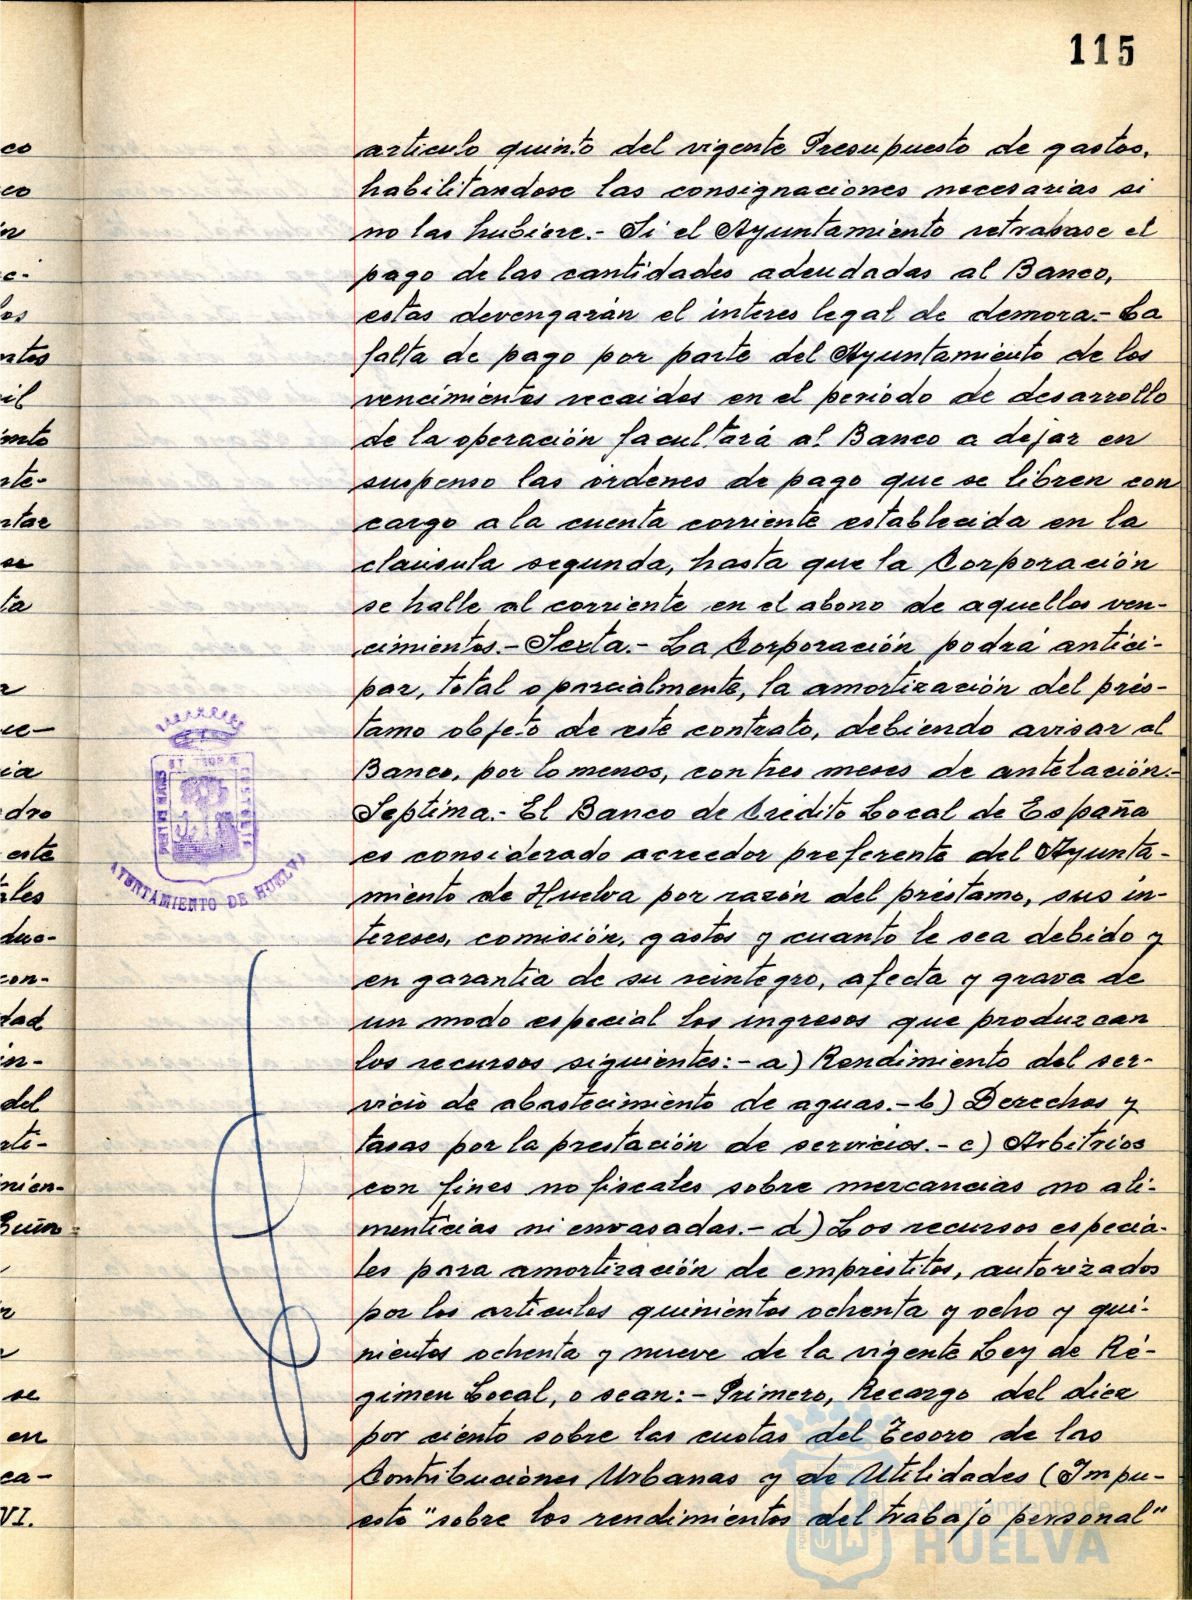 115
articulo quinto del vigente Presupuesto de gastos,
habilitandose las consignaciones necesarias si
no las hubiere.- Si el Ayuntamiento retrasase el
pago de las cantidades adeudadas al Banco,
estas devengarán el interes legal de demora.- La
falta de pago por parte del Ayuntamiento de los
vencimientos recaidos en el periódo de desarrollo
de la operación facultará al Banco a dejar en
suspenso las órdenes de pago que se libren con
cargo a la cuenta corriente establecida en la
claúsula segunda, hasta que la Corporación
se halle al corriente en el abono de aquellos ven-
cimientos.- Sexta.- La Corporación podrá antici-
par, total o parcialmente, la amortización del prés-
tamo objeto de este contrato, debiendo avisar al
Banco, por lo menos, con tres meses de antelación.-
Septima.- El Banco de Crédito Local de España
es considerado acreedor preferente del Ayunta-
miento de Huelva por razón del préstamo, sus in-
tereses, comisión, gastos y cuanto le sea debido y
en garantia de su reintegro, afecta y grava de
un modo especial los ingresos que produzcan
los recursos siguientes:- a) Rendimiento del ser-
vicio de abastecimiento de aguas.- b) Derechos y
tasas por la prestación de servicios.- c) Arbitrios
con fines no fiscales sobre mercancias no ali-
menticias ni envasadas.- d) Los recursos especia-
les para amortización de empréstitos, autorizados
por los articulos quinientos ochenta y ocho y qui-
nientos ochenta y nueve de la vigente Ley de Ré-
gimen Local, o sean:- Primero, Recargo del diez
por ciento sobre las cuotas del Tesoro de las
Contribuciones Urbanas y de Utilidades (Impu-
esto "sobre los rendimientos del trabajo personal"
AYUNTAMIENTO DE HUELVA
Ayuntamiento de
HUELVA